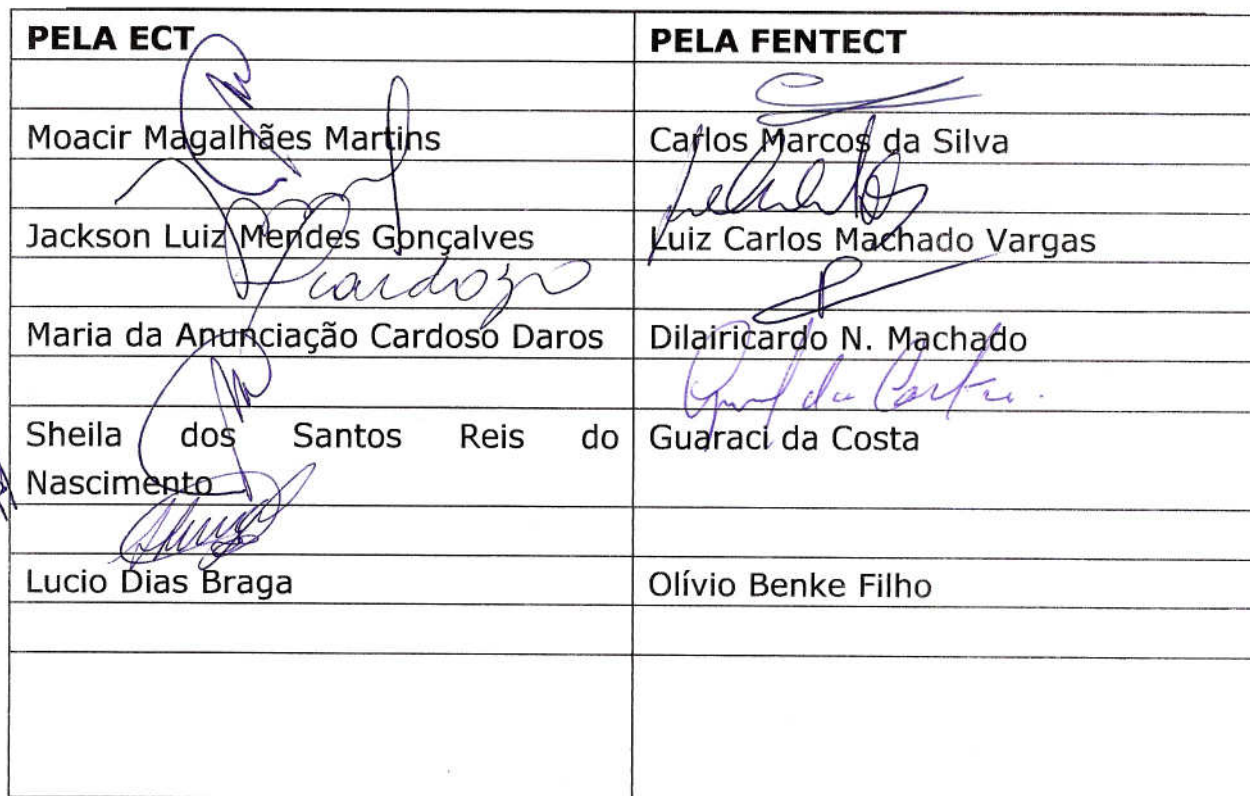 PELA ECT
PELA FENTECT
Moacir Magalhães Martins
Carlos Marcos da Silva
Jackson Luiz Mendes Gonçalves
Luiz Carlos Machado Vargas
Cardozo
Maria da Anunciação Cardoso Daros
Dilairicardo N. Machado
da Costa
Sheila dos Santos Reis do
Nascimento
Guaraci da Costa
Lucio Dias Braga
Olívio Benke Filho